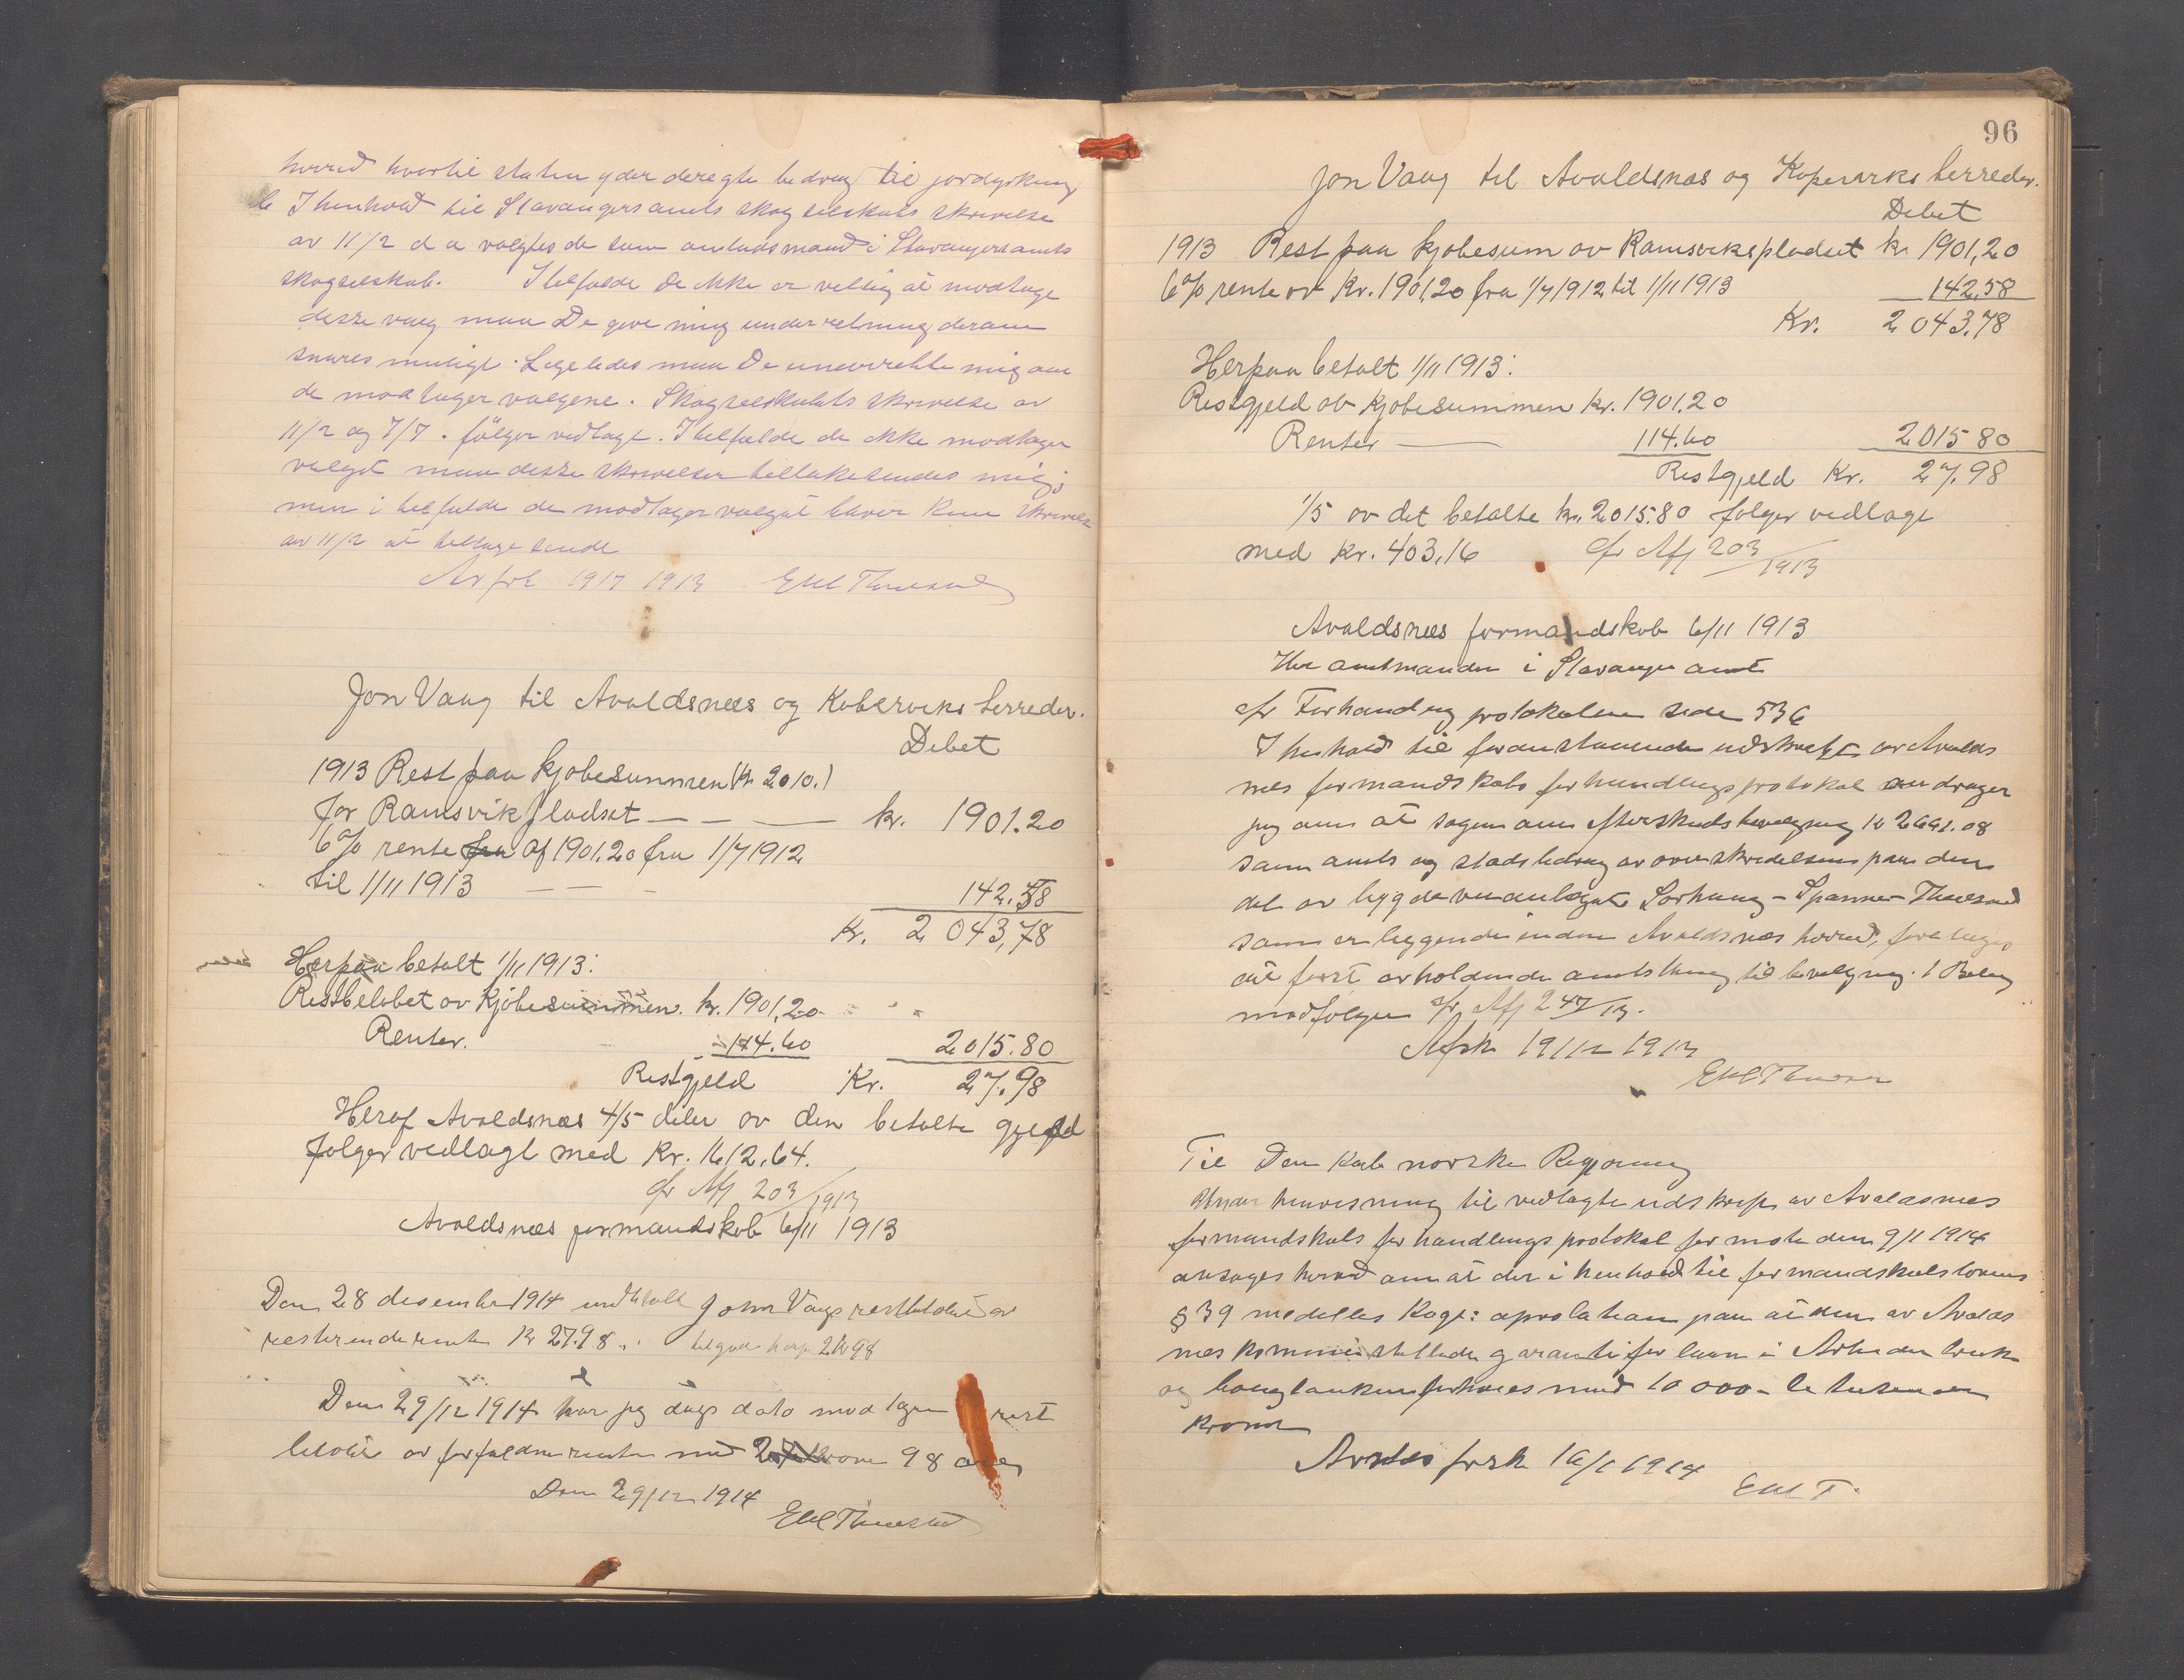 herred hvortil staten yder deregte bedrag til jordyrkning
I henhold til Stavangersamts skogselskabs skrivelse
av 11/2 d a valgtes de som ombudsmand i Stavangersamts
skogselskab. I tilfælde De ikke er villig at modtage
desse valg maa De give mig underretning derom
snares muligt. Ligeledes maa De underrette mig om
de modtager valgene. Skogselskabets skrivelse av
11/2 og 7/7. følger vedlagt. I tilfælde de ikke modtager
valget maa desse skrivelser tilbakesendes mig;
men i tilfælde de modtager valget bliver kun skrivelse
av 11/2 at tilbage sende
Av fsk 19/7 1913 E M Thuestad
Jon Vaag til Avaldsnæs og Kobervik herreder.
Debet
1913 Rest paa kjøbesummen (kr 2010.)
for Ramsvikpladset — — — kr. 1901.20
6% rente af 1901.20 fra 1/7 1912
til 1/11 1913 — — — 142.58
Kr. 2 043,78
Herpaa betalt 1/11 1913:
Restbeløbet av Kjøbesummen. kr. 1901,20
Renter. 114.60 2015.80
Restgjeld Kr. 27.98
Heraf Avaldsnæs 4/5 deler av den betalte gjeld
følger vedlagt med Kr. 1612.64.
cfr Afj 203/1913
Avaldsnæs formandskab 6/11 1913
Den 28 desember 1914 indbetalt John Vaags restbeløbet av
resterende renter Kr 27.98.
Den 29/12 1914 har jeg dags dato modtagen rest
beløb av forfaldne renter med kroner 98 øre
Den 29/12 1914
E M Thuestad
96
Jon Vaag til Avaldsnæs og Kopervik herreder.
Debet
1913 Rest paa kjøbesum av Ramsvikspladset kr 1901,20
6% rente av Kr. 1901,20 fra 1/7 1912 til 1/11 1913 142,58
Kr. 2 043.78
Herpaa betalt 1/11 1913:
Restgjeld av Kjøbesummen kr. 1901.20
Renter — 114.60 2015 80
Restgjeld Kr. 27.98
1/5 av det betalte kr. 2015.80 følger vedlagt
med Kr. 403,16 cfr Afj 203/1913
Avaldsnæs formandskab 6/11 1913
Hr amtmanden i Stavanger amt
cfr Forhandlingprotokolen side 536
I henhold til foranstaaende udskrift av Avalds
næs formandskabs forhandlingsprotokol andrager
jeg om at sagen om efterskudsbevilgning kr 2691.08
som amts og stads bidrag av overskridelsen paa den
del av bygdeveianlæget Sørhaug - Spanne - Thuestad
som er liggende inden Avaldsnæs herred, forelægges
det først avholdende amtsthing til bevilgning. 1 Bilag
medfølger cfr Afj 247/13.
Avfsk 19/12 1913
E M Thuestad
Til Den Kgl norske Regjering
Under henvisning til vedlagte udskrift av Avaldsnæs
formandskabs forhandlingsprotokol for møte den 9/1 1914
ansøges herved om at der i henhold til formandskabslovens
§ 39 meddelles Kogl: aprobation paa at den av Avalds
næs kommune stillede garanti for laan i Arbeiderbruk
og boligbanken forhøies med 10 000 - ti tusen
kroner
Avnæs forsk 16/1 1914
E M T.